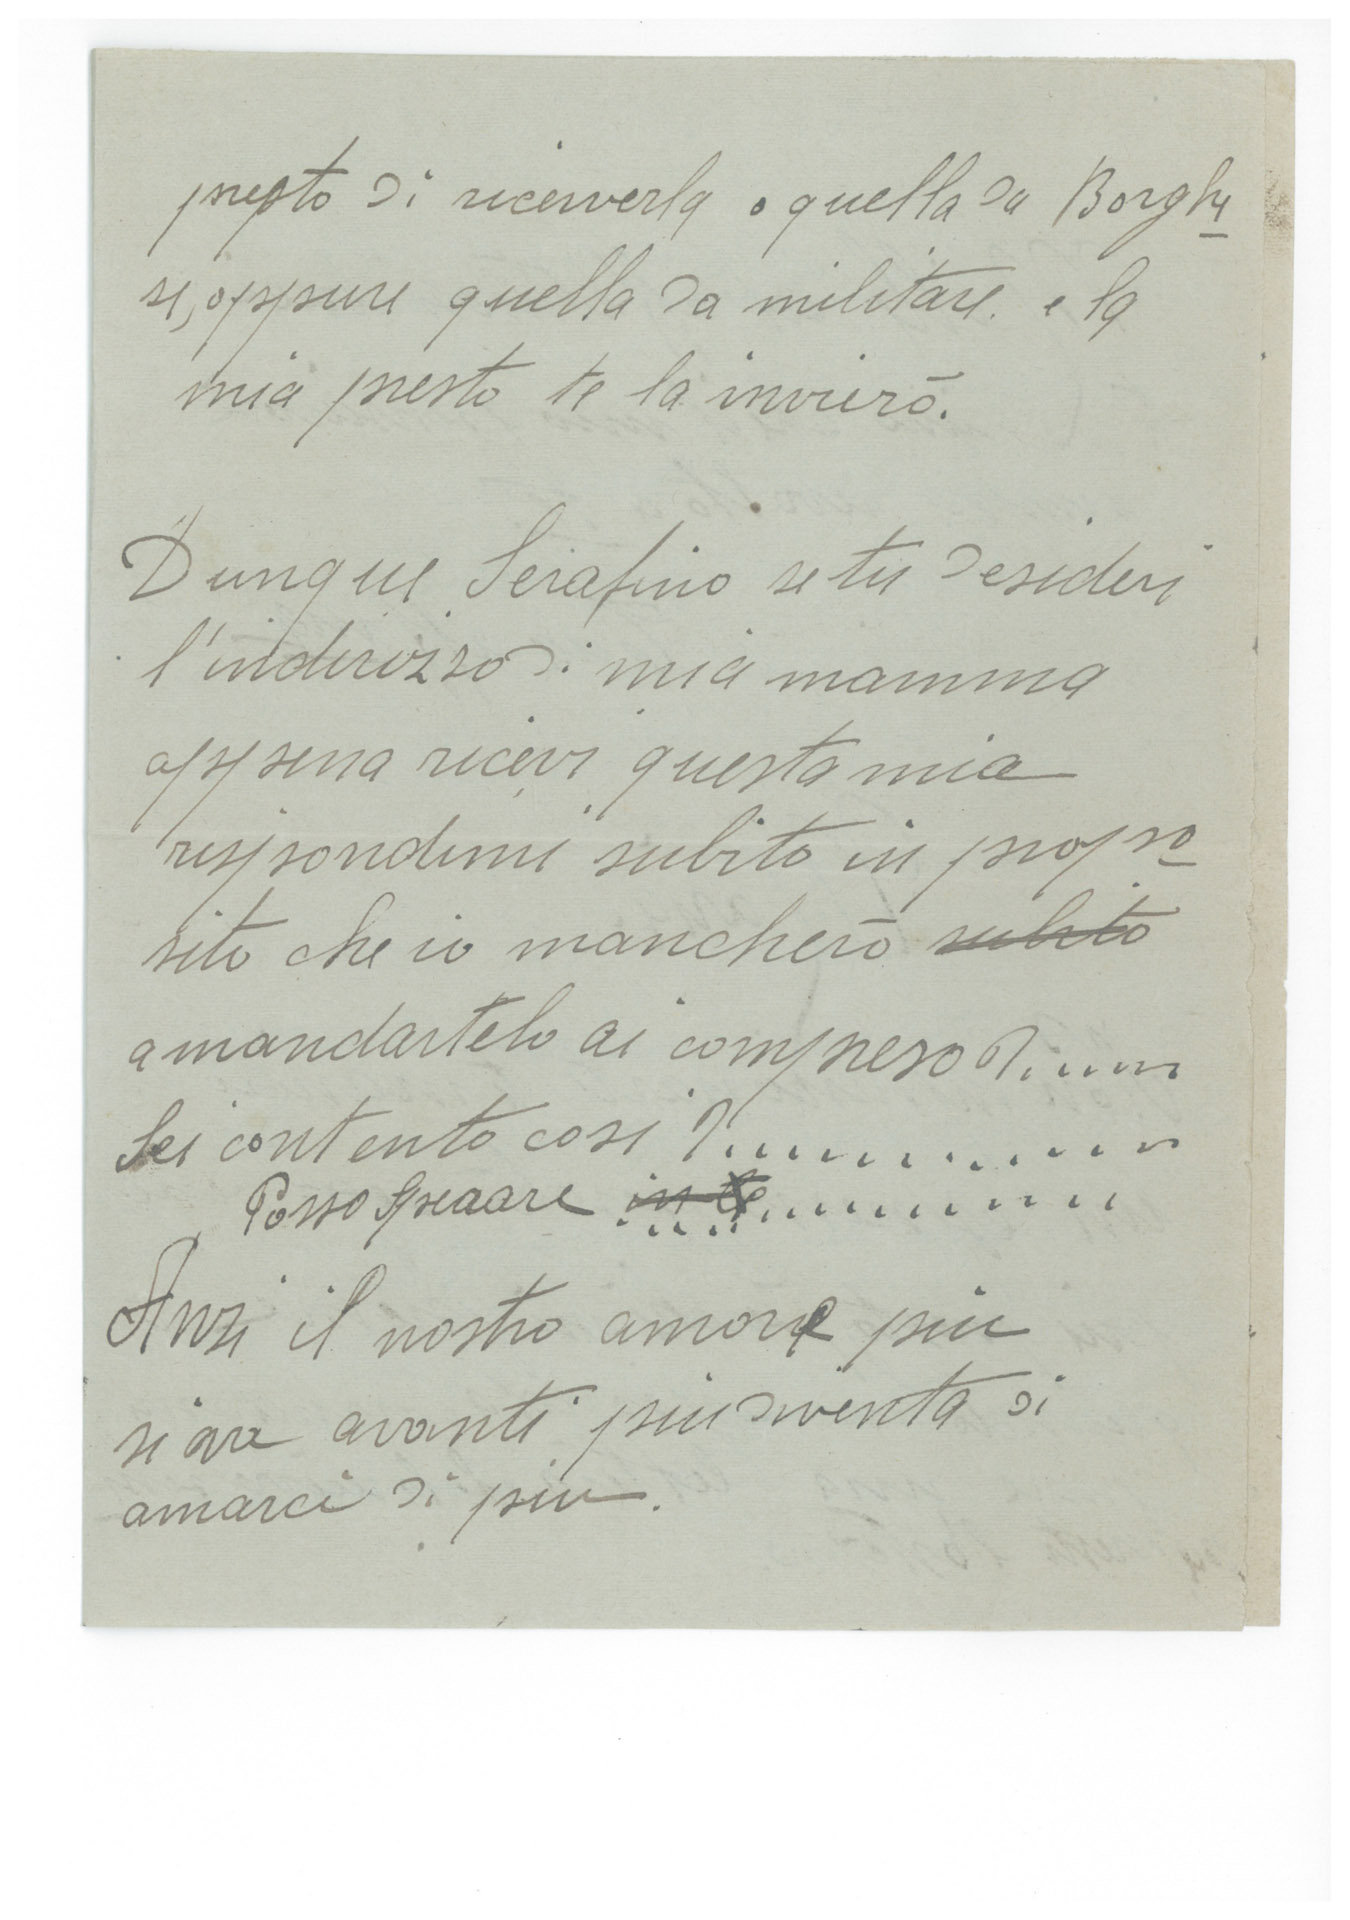 presto di riceverla o quella da Borghe
se, oppure quella da militare. e la
mia presto te la invierò.
Dunque Serafino se tu desideri
l'indirizzo di mia mamma
appena ricevi questa mia
rispondimi subito in propo
sito che io mancherò subito
a mandartelo ai compreso?......
Sei contento cosi?..............
Posso Speaare in te..............
Anzi il nostro amore piu
si va avanti piu diventa di
amarci di piu.